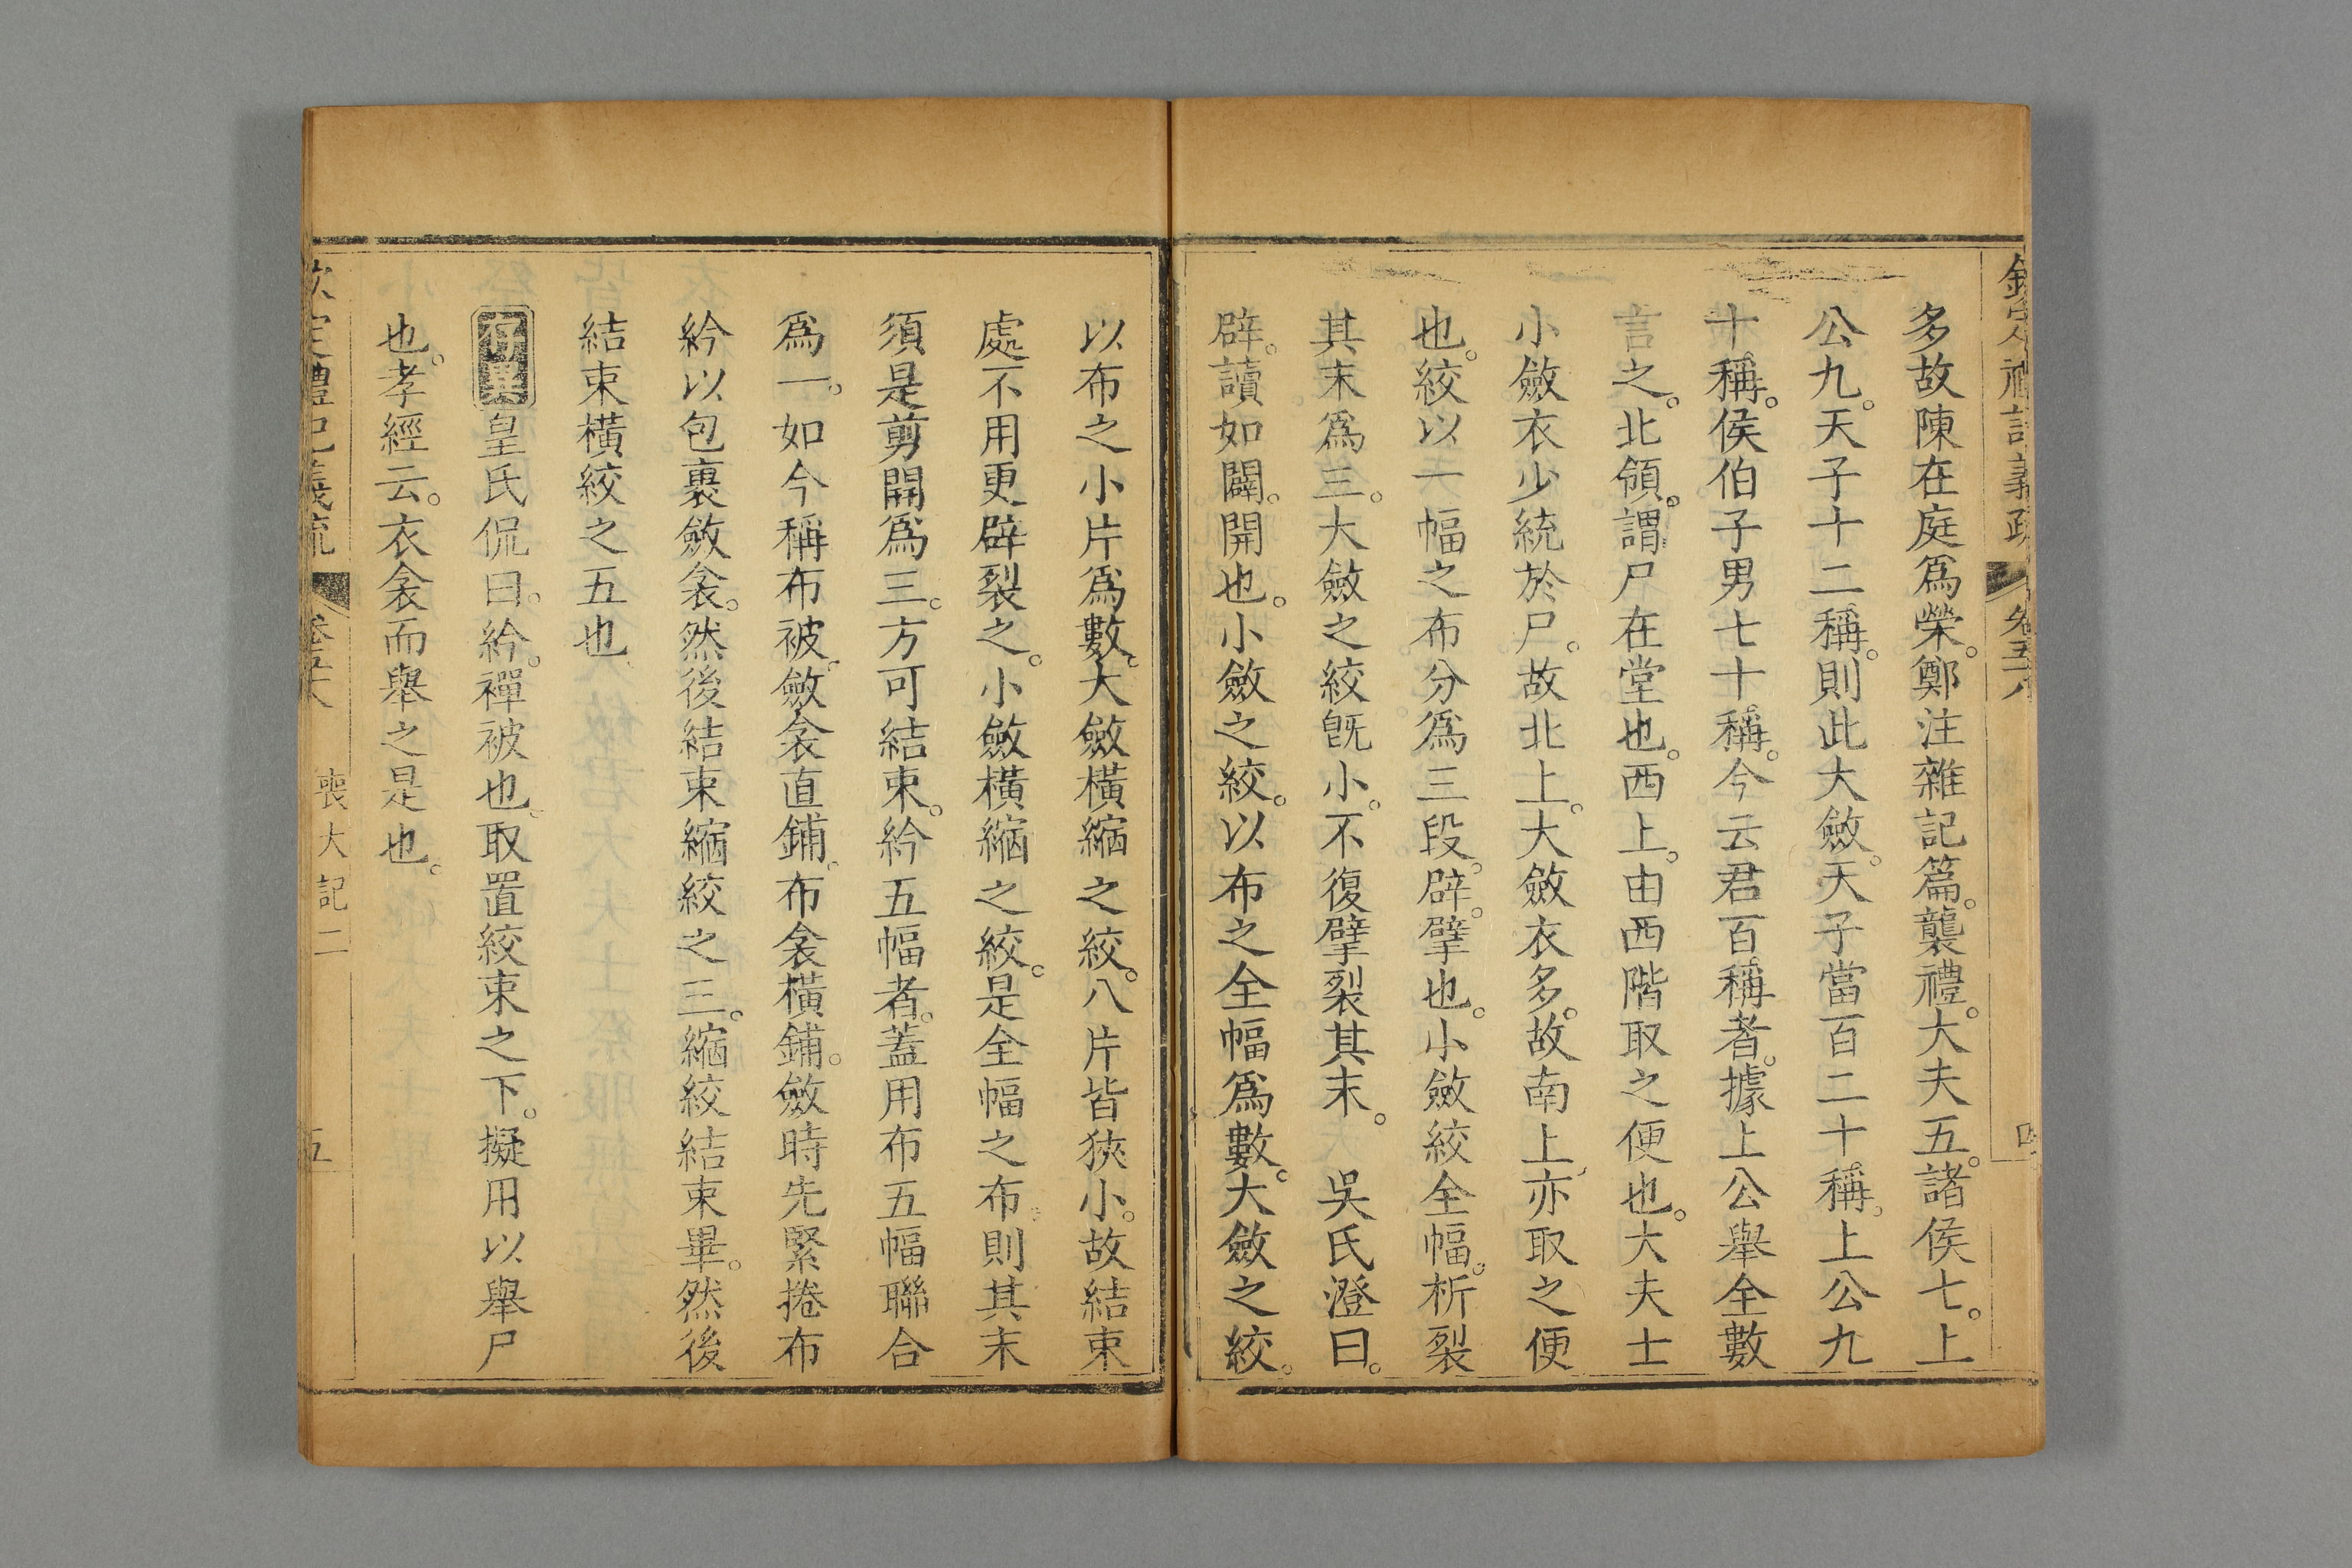 欽定禮記義疏 卷五十八 四
多故陳在庭爲榮。鄭注雜記篇。襲禮。大夫五。諸侯七。上
公九。天子十二稱。則此大斂。天子當百二十稱。上公九
十稱。侯伯子男七十稱。今云君百稱者。據上公舉全數
言之。北領。謂尸在堂也。西上。由西階取之便也。大夫士
小斂衣少統於尸。故北上。大斂衣多。故南上。亦取之便
也。絞以一幅之布分爲三段。辟。擘也。小斂絞全幅。析裂
其末爲三。大斂之絞旣小。不復擘裂其末。 吳氏澄曰。
辟。讀如闢。開也。小斂之絞。以布之全幅爲數。大斂之絞。
以布之小片爲數。大斂橫縮之絞。八片皆狹小。故結束
處不用更辟裂之。小斂橫縮之絞。是全幅之布。則其末
須是剪開爲三。方可結束。紟五幅者。蓋用布五幅聯合
爲一。如今稱布被。斂衾直鋪。布衾橫鋪。斂時先緊捲布
紟以包裹斂衾。然後結束縮絞之三。縮絞結束畢。然後
結束橫絞之五也。
存異皇氏侃曰。紟。襌被也。取置絞束之下。擬用以舉尸
也。孝經云。衣衾而舉之是也。
欽定禮記義疏 卷五十八 喪大記二 五